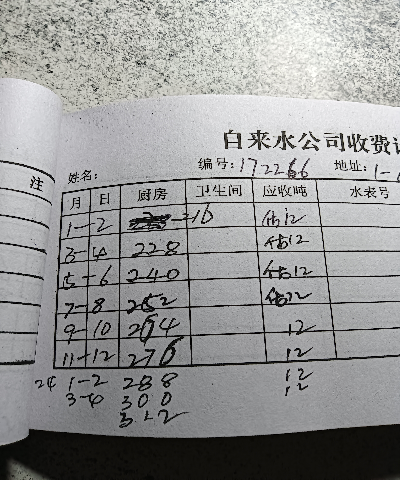 注
自来水公司收费
姓名: 编号:172266 地址:1-
月 日 厨房 卫生间 应收吨 水表号
1-2 216 估12
3-4 228 估12
5-6 240 估12
7-8 252 估12
9-10 264 12
11-12 276 12
24 1-2 288 12
3-4 300 12
312